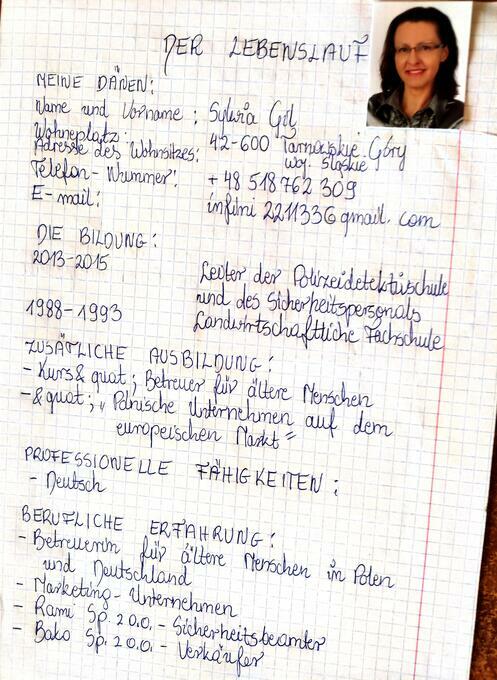 DER LEBENSLAUF
MEINE DÄNEN:
Name und Vorname: Sylwia Gil
Wohneplatz:
Adresse des Wohnsitzes: 42-600 Tarnowskie Góry
woj. śląskie
Telefon-Nummer: +48 518 762 309
E-mail: infimi 221133@gmail.com
DIE BILDUNG:
2013-2015 Leiter der Polizeidetektivschule
und des Sicherheitspersonals
1988-1993 Landwirtschaftliche Fachschule
ZUSÄTLICHE AUSBILDUNG:
- Kurs& quat; Betreuer für ältere Menschen
- & quat; „Polnische Unternehmen auf dem
europeischen Markt"
PROFESSIONELLE FÄHIGKEITEN:
- Deutsch
BERUFLICHE ERFAHRUNG:
- Betreuerin für ältere Menschen in Polen
und Deutschland
- Marketing-Unternehmen
- Rami Sp. z o.o. - Sicherheitsbeamter
- Bako Sp. z o.o. - Verkäufer